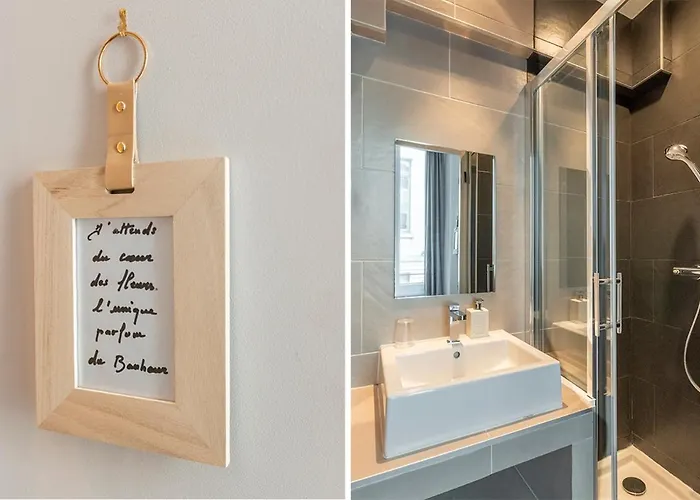 J'attends
du cœur
des fleurs.
l'unique
parfum
du Bonheur